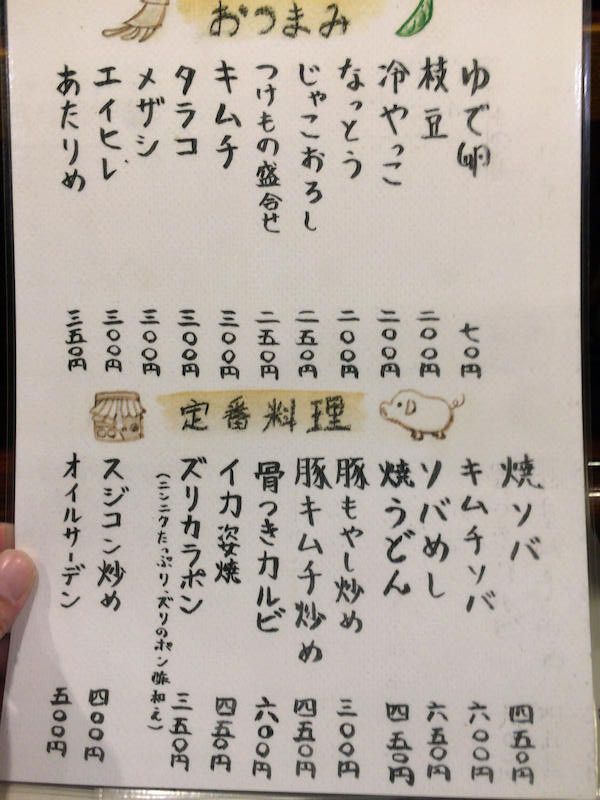 おつまみ
ゆで卵 七〇円
枝豆 二〇〇円
冷やっこ 二〇〇円
なっとう 二〇〇円
じゃこおろし 二五〇円
つけもの盛合せ 二五〇円
キムチ 三〇〇円
タラコ 三〇〇円
メザシ 三〇〇円
エイヒレ 三〇〇円
あたりめ 三五〇円
定番料理
焼ソバ 四五〇円
キムチソバ 六〇〇円
ソバめし 六五〇円
焼うどん 四五〇円
豚もやし炒め 三〇〇円
豚キムチ炒め 四五〇円
骨つきカルビ 六〇〇円
イカ姿焼 四五〇円
ズリカラポン 三五〇円
(ニンニクたっぷり、ズリのポン酢和え)
スジコン炒め 四〇〇円
オイルサーデン 五〇〇円